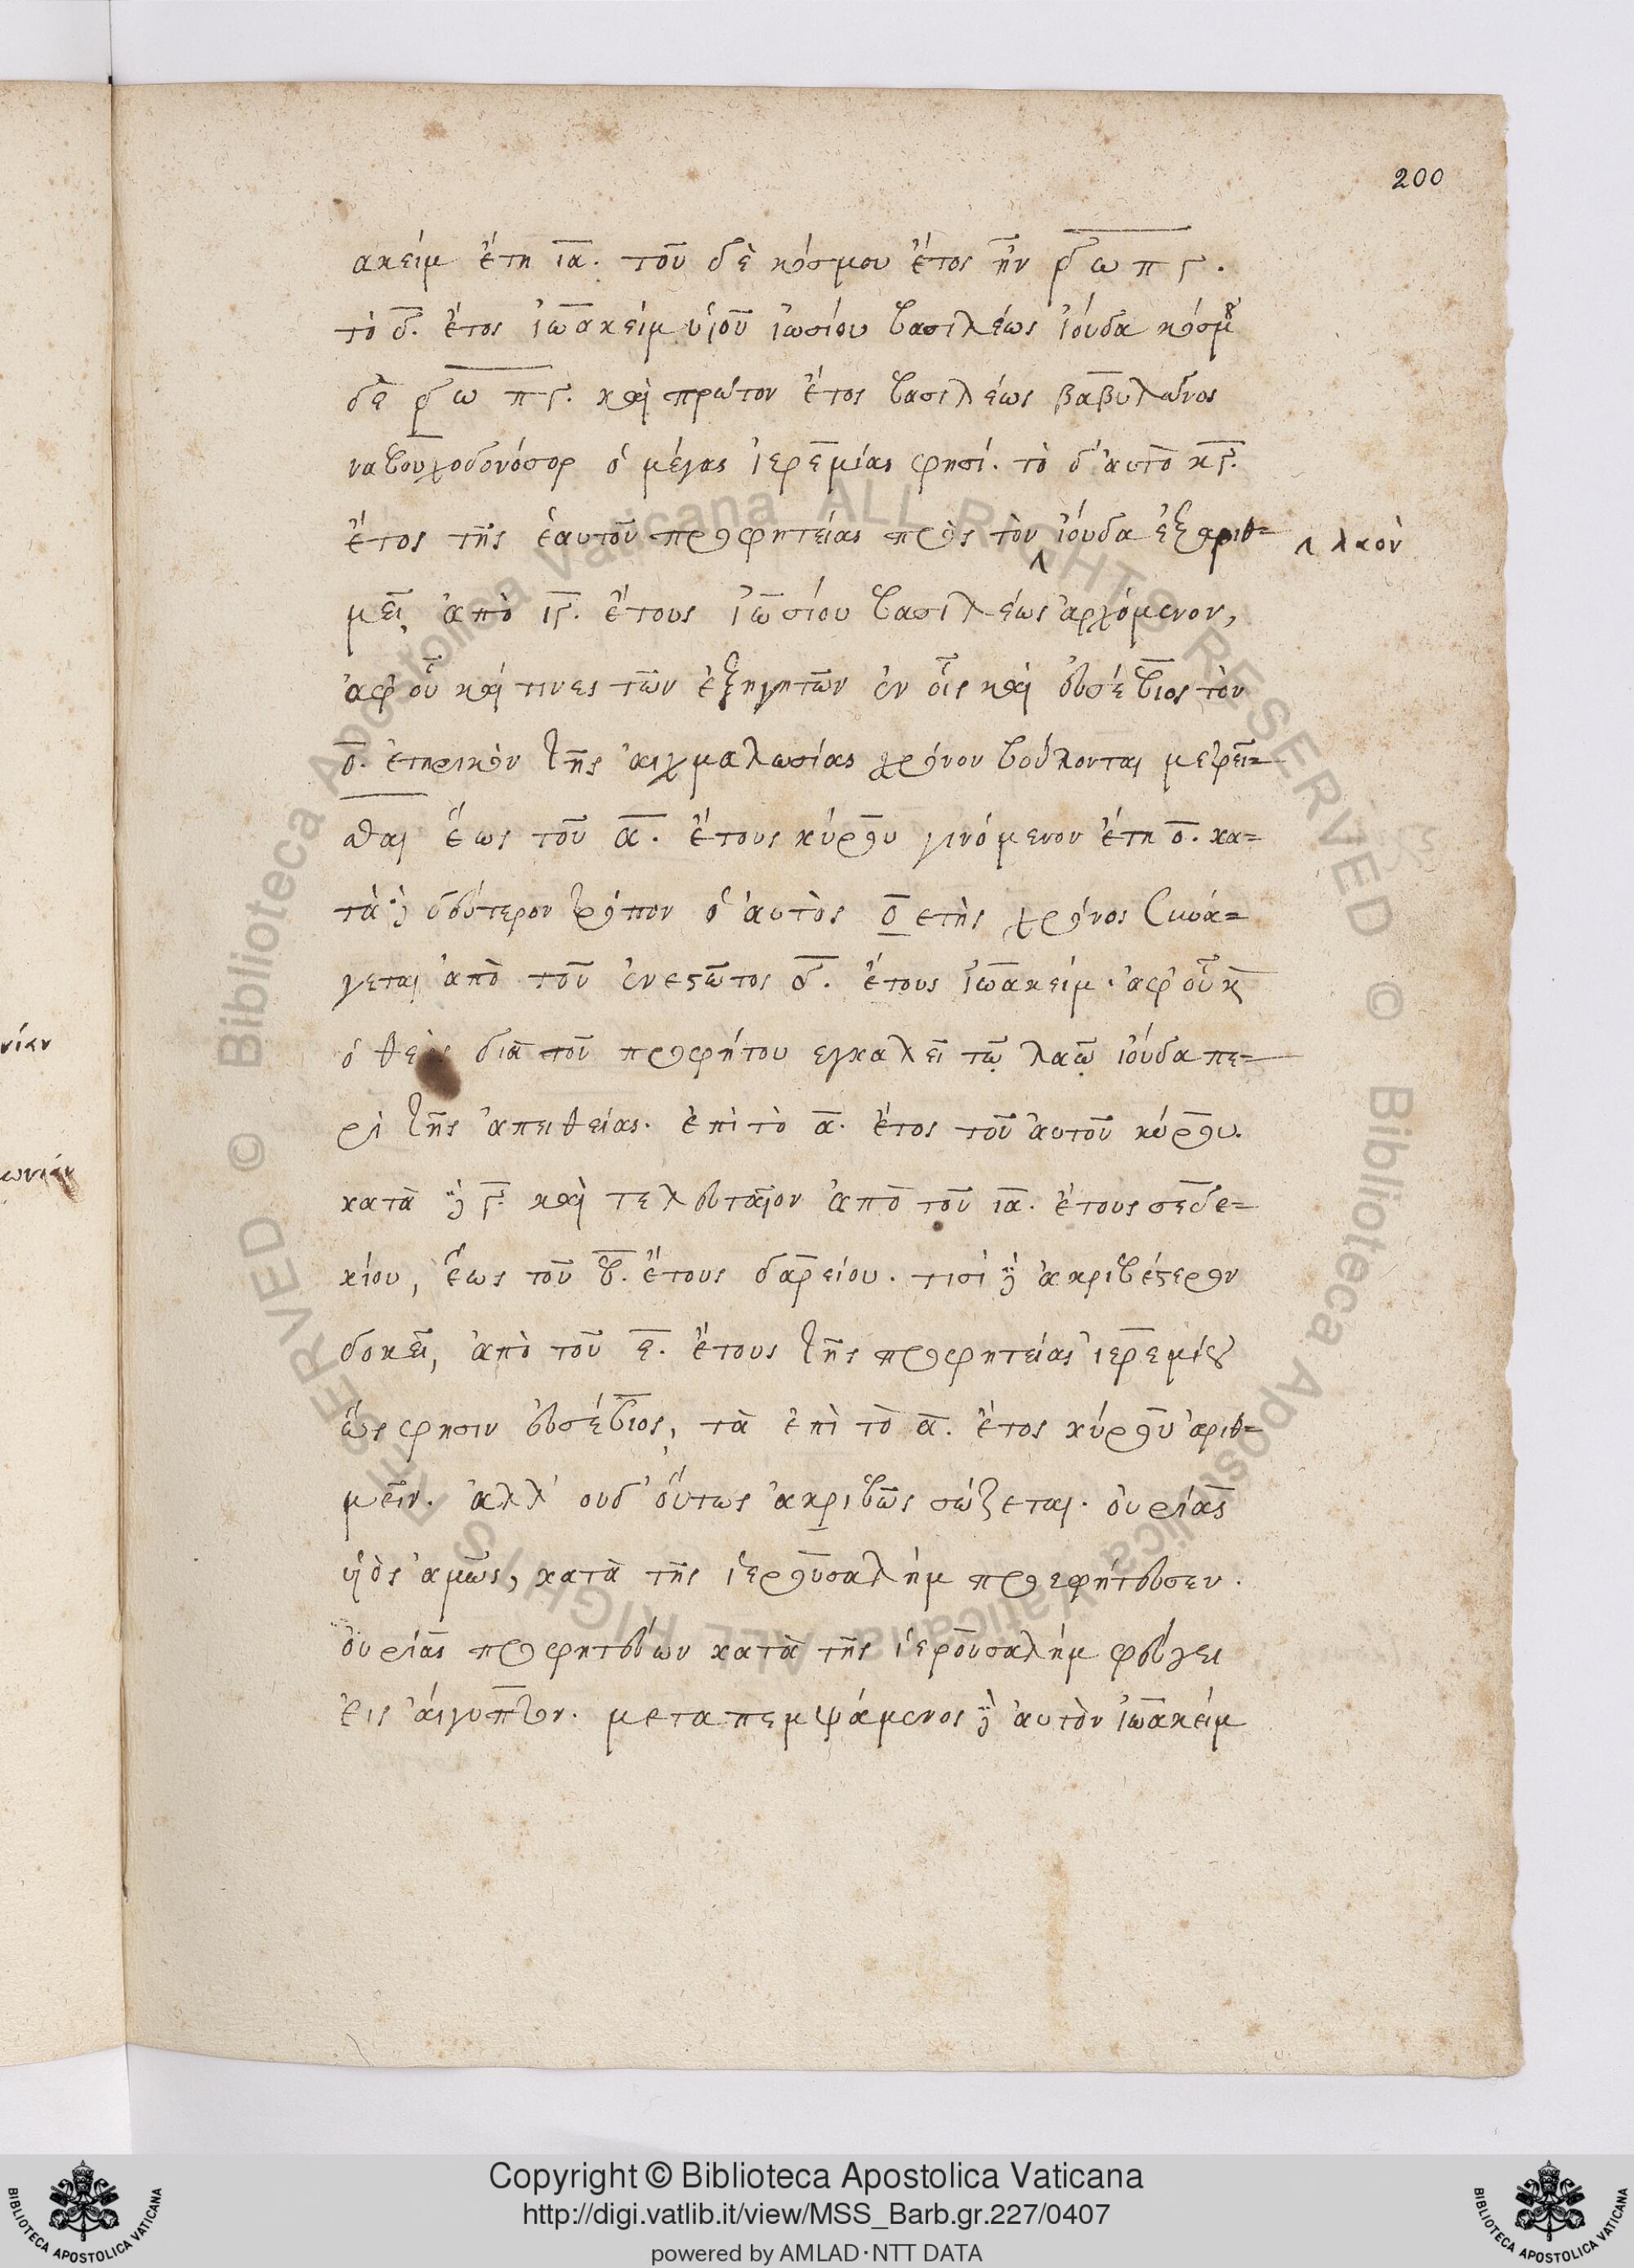 200
ακείμ ἔτη ια. τοῦ δὲ κόσμου ἔτος ἦν δωπγ.
τὸ δ. ἔτος ἰωακείμ υἱοῦ ἰωσίου βασιλέως ἰούδα κόσμου
δὲ δωπγ. καὶ πρώτον ἔτος βασιλέως βαβυλῶνος
ναβουχοδονόσορ ὁ μέγας ἰερεμίας φησί. τὸ δ' αυτὸ κγ.
ἔτος τῆς ἑαυτοῦ προφητείας πρὸς τὸν ἰούδα ἐξαριθ=
λαὸν
μεῖ, ἀπὸ ιγ. ἔτους ἰωσίου βασιλέως ἀρχόμενον,
ἀφ' οὗ καί τινες τῶν ἐξηγητῶν ἐν οἷς καὶ ἐυσέβιος τὸν
ο. ετηρικὸν τῆς ἀιχμαλωσίας χρόνον βούλονται μετρεῖ=
σθαι ἕως τοῦ α. ἔτους κύρου γινόμενον ἔτη ο. κα=
τὰ δὲ δεύτερον τρόπον ὁ ἀυτὸς ο ετὴς χρόνος συνά=
γεται ἀπὸ τοῦ ἐνεστῶτος δ. ἔτους ἰωακείμ. ἀφ' οὗ κ
ὁ θεὸς διὰ τοῦ προφήτου εγκαλεῖ τῷ λαῷ ἰούδα πε=
ρὶ τῆς ἀπειθείας. ἐπὶ τὸ α. ἔτος τοῦ ἀυτοῦ κύρου.
κατὰ δὲ γ. καὶ τελευταῖον ἀπὸ τοῦ ια. ἔτους σεδε=
κίου, ἕως τοῦ β. ἔτους δαρείου. τισὶ δὲ ἀκριβέστερον
δοκεῖ, ἀπὸ τοῦ ε. ἔτους τῆς προφητείας ἰερεμίου
ὥς φησιν ἐυσέβιος, τὰ ἐπὶ τὸ α. ἔτος κύρου ἀριθ=
μεῖν. ἀλλ' ουδ' ὅυτως ἀκριβῶς σώζεται. ὀυρίας
υἱὸς ἀμὼς, κατὰ τῆς ἱερουσαλήμ προεφήτευσεν.
ὀυρίας προφητεύων κατὰ τῆς ἱερουσαλήμ φεύγει
ἐις ἀίγυπτον. μεταπεμψάμενος δὲ ἀυτὸν ἰωακείμ
νίαν
ωνίαν
Copyright © Biblioteca Apostolica Vaticana
http://digi.vatlib.it/view/MSS_Barb.gr.227/0407
powered by AMLAD·NTT DATA
BIBLIOTECA APOSTOLICA VATICANA
BIBLIOTECA APOSTOLICA VATICANA
© Biblioteca Apostolica Vaticana ALL RIGHTS RESERVED
© Biblioteca Apostolica Vaticana ALL RIGHTS RESERVED